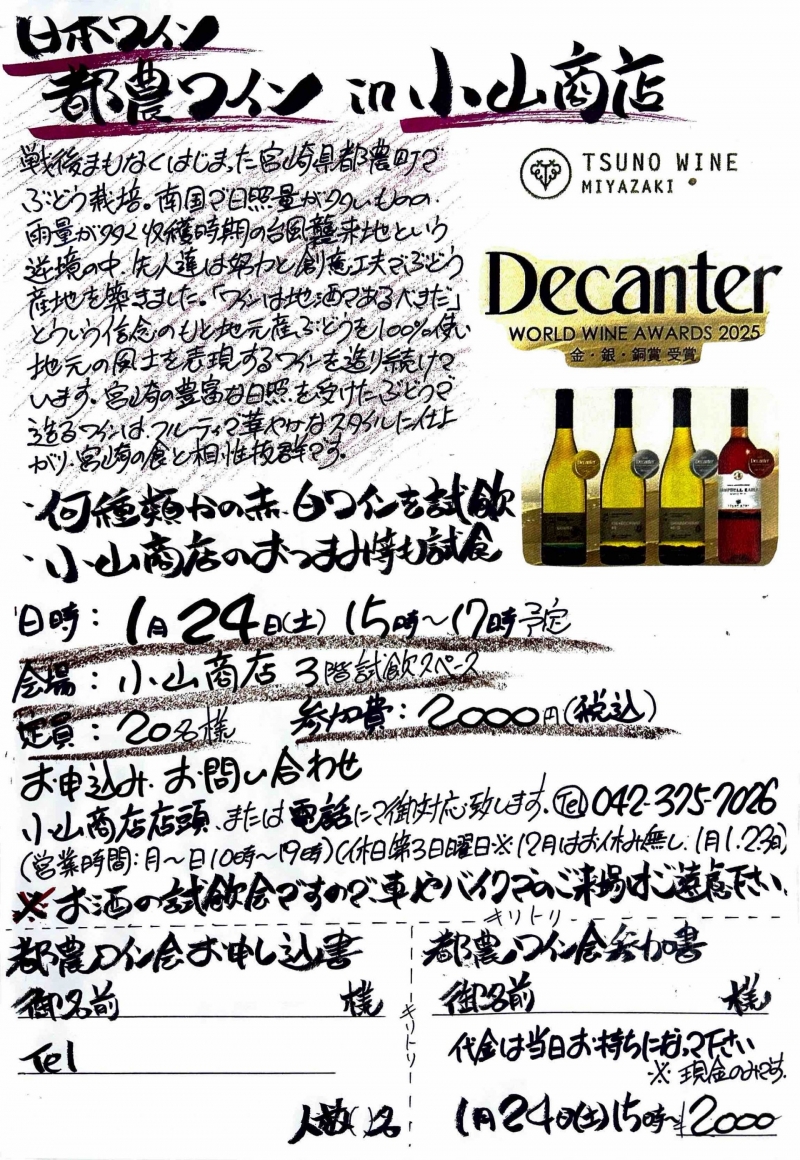 日本ワイン
都農ワイン in 小山商店
戦後まもなくはじまった宮崎県都農町で
ぶどう栽培。南国で日照量が多いものの、
雨量が多く収穫時期の台風襲来地という
逆境の中、先人達は努力と創意工夫でぶどう
産地を築きました。「ワインは地酒であるべきだ」
という信念のもと地元産ぶどうを100%使い
地元の風土を表現するワインを造り続けて
います。宮崎の豊富な日照を受けたぶどうで
造るワインは、フルーティで華やかなスタイルに仕上
がり、宮崎の食と相性抜群です。
TSUNO WINE
MIYAZAKI
Decanter
WORLD WINE AWARDS 2025
金・銀・銅賞 受賞
・何種類かの赤、白ワインを試飲
・小山商店のおつまみ等も試食
日時：1月24日(土) 15時～17時予定
会場：小山商店 3階試飲スペース
定員：20名様 参加費：2000円(税込)
お申込み、お問い合わせ
小山商店店頭、または電話にて御対応致します。Tel 042-375-7026
(営業時間：月～日10時～19時)(休日第3日曜日※12月はお休み無し、1月1.2.3日)
※お酒の試飲会ですので、車やバイクでのご来場はご遠慮下さい。
キリトリ
都農ワイン会お申し込書
御名前 様
Tel
人数( )名
キリトリ
都農ワイン会参加書
御名前 様
代金は当日お持ちになって下さい
※現金のみです。
1月24日(土)15時～ ¥2000